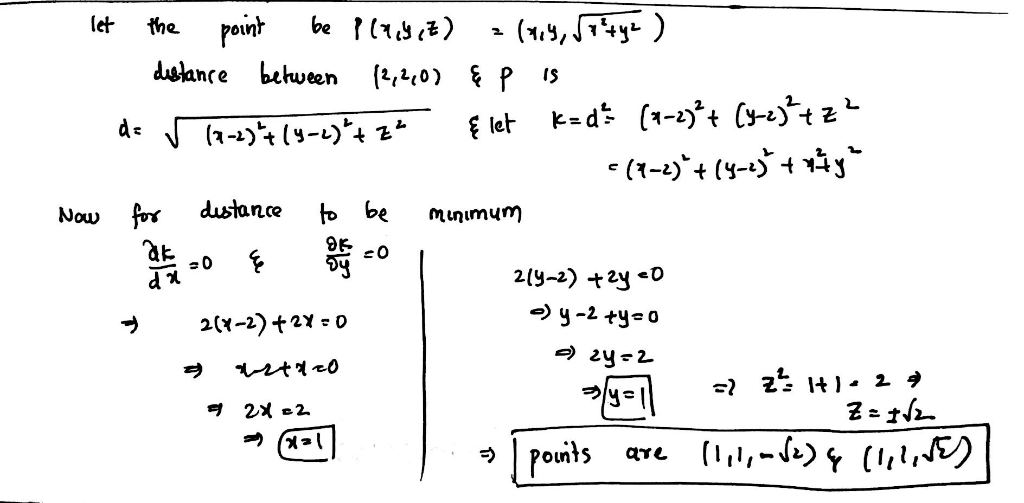 let the point be P(x,y,z) = (x,y,√x²+y²)
distance between (2,2,0) & P is
d = √(x-2)²+(y-2)²+z² & let K=d²= (x-2)²+(y-2)²+z²
=(x-2)²+(y-2)²+x²+y²
Now for distance to be minimum
∂K/dx =0 & ∂K/∂y =0
⇒ 2(x-2)+2x=0
⇒ x-2+x=0
⇒ 2x=2
⇒ x=1
2(y-2)+2y=0
⇒ y-2+y=0
⇒ 2y=2
⇒ y=1 ⇒ z²=1+1=2 ⇒
z=±√2
⇒ points are (1,1,-√2) & (1,1,√2)